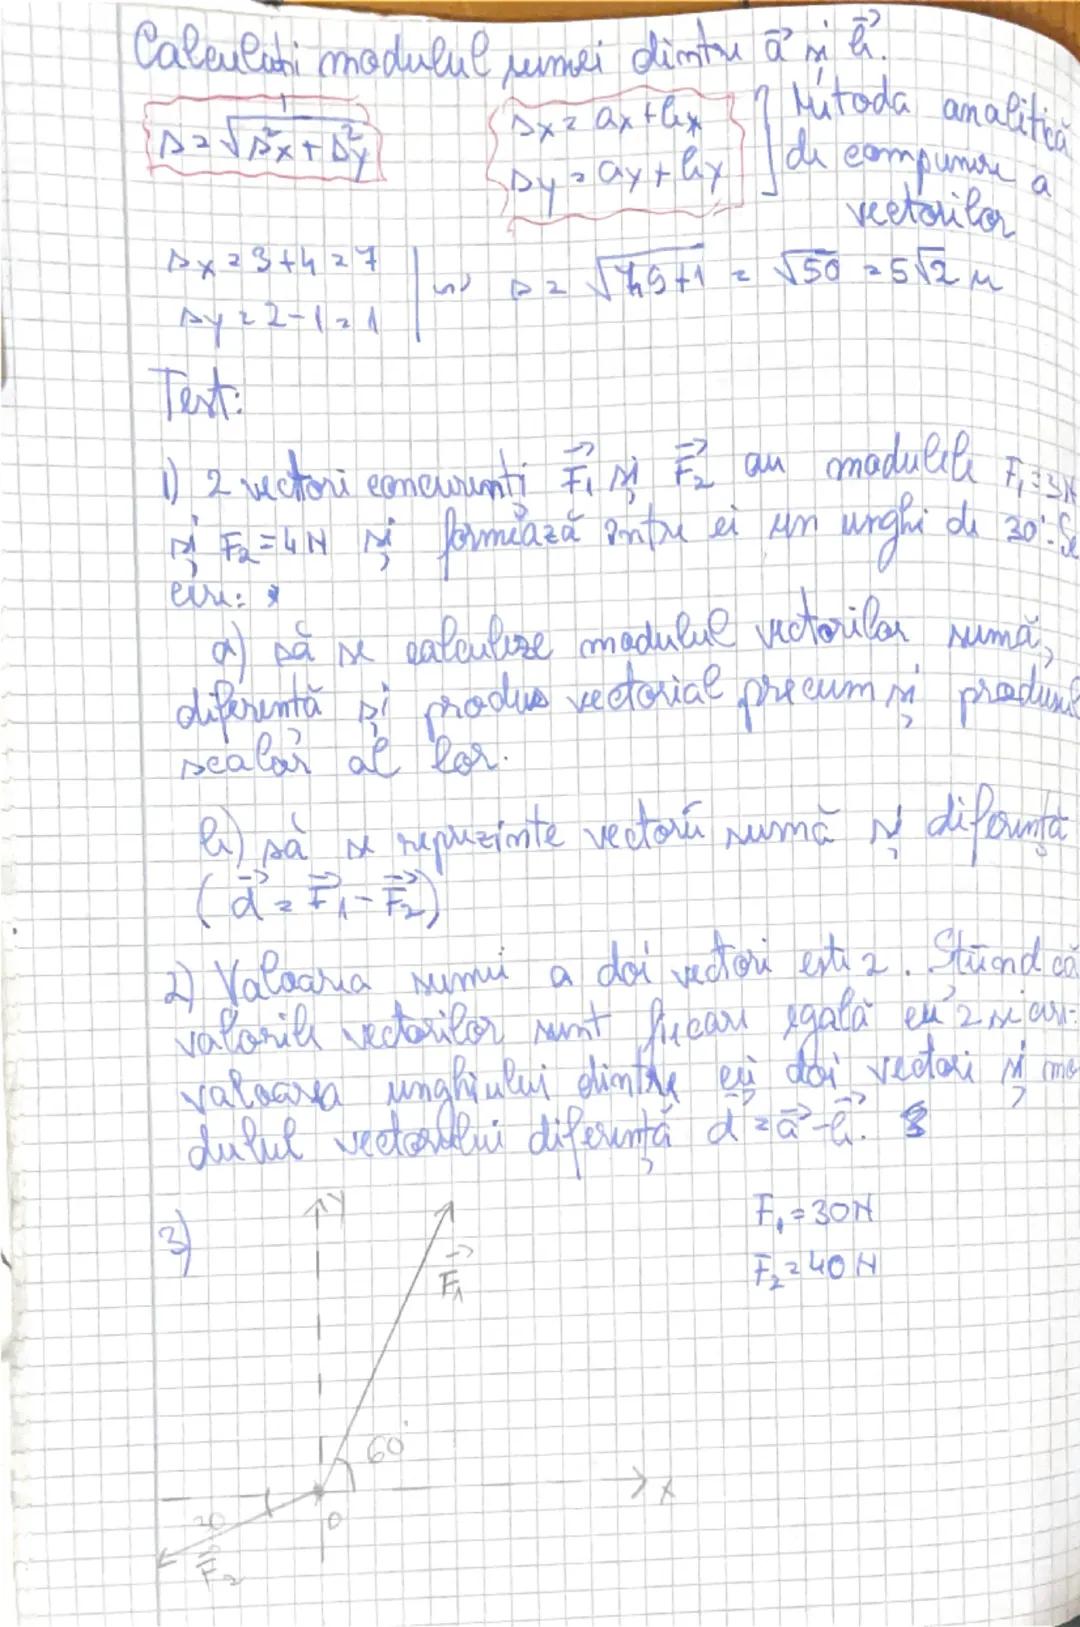 Calculați modulul sumei dintre a⃗ și b⃗.
s=√s²x+s²y
sx=ax+bx
sy=ay+by
Metoda analitică
de compunere a
vectorilor
sx=3+4=7
sy=2-1=1
=> s=√49+1 = √50 =5√2 u
Test:
1) 2 vectori concurenți F⃗₁ și F⃗₂ au modulele F₁=3N
și F₂=4N și formează între ei un unghi de 30°. Se
cere:
a) să se calculeze modulul vectorilor sumă,
diferență și produs vectorial precum și produsul
scalar al lor.
b) să se reprezinte vectorii sumă și diferență
(d⃗=F⃗₁-F⃗₂)
2) Valoarea sumei a doi vectori este 2. Știind că
valorile vectorilor sunt fiecare egală cu 2 se cere:
valoarea unghiului dintre cei doi vectori și mo
dulul vectorului diferență d⃗=a⃗-b⃗.
3)
y
F⃗₁
F₁=30N
F₂=40N
60°
x
O
F⃗₂